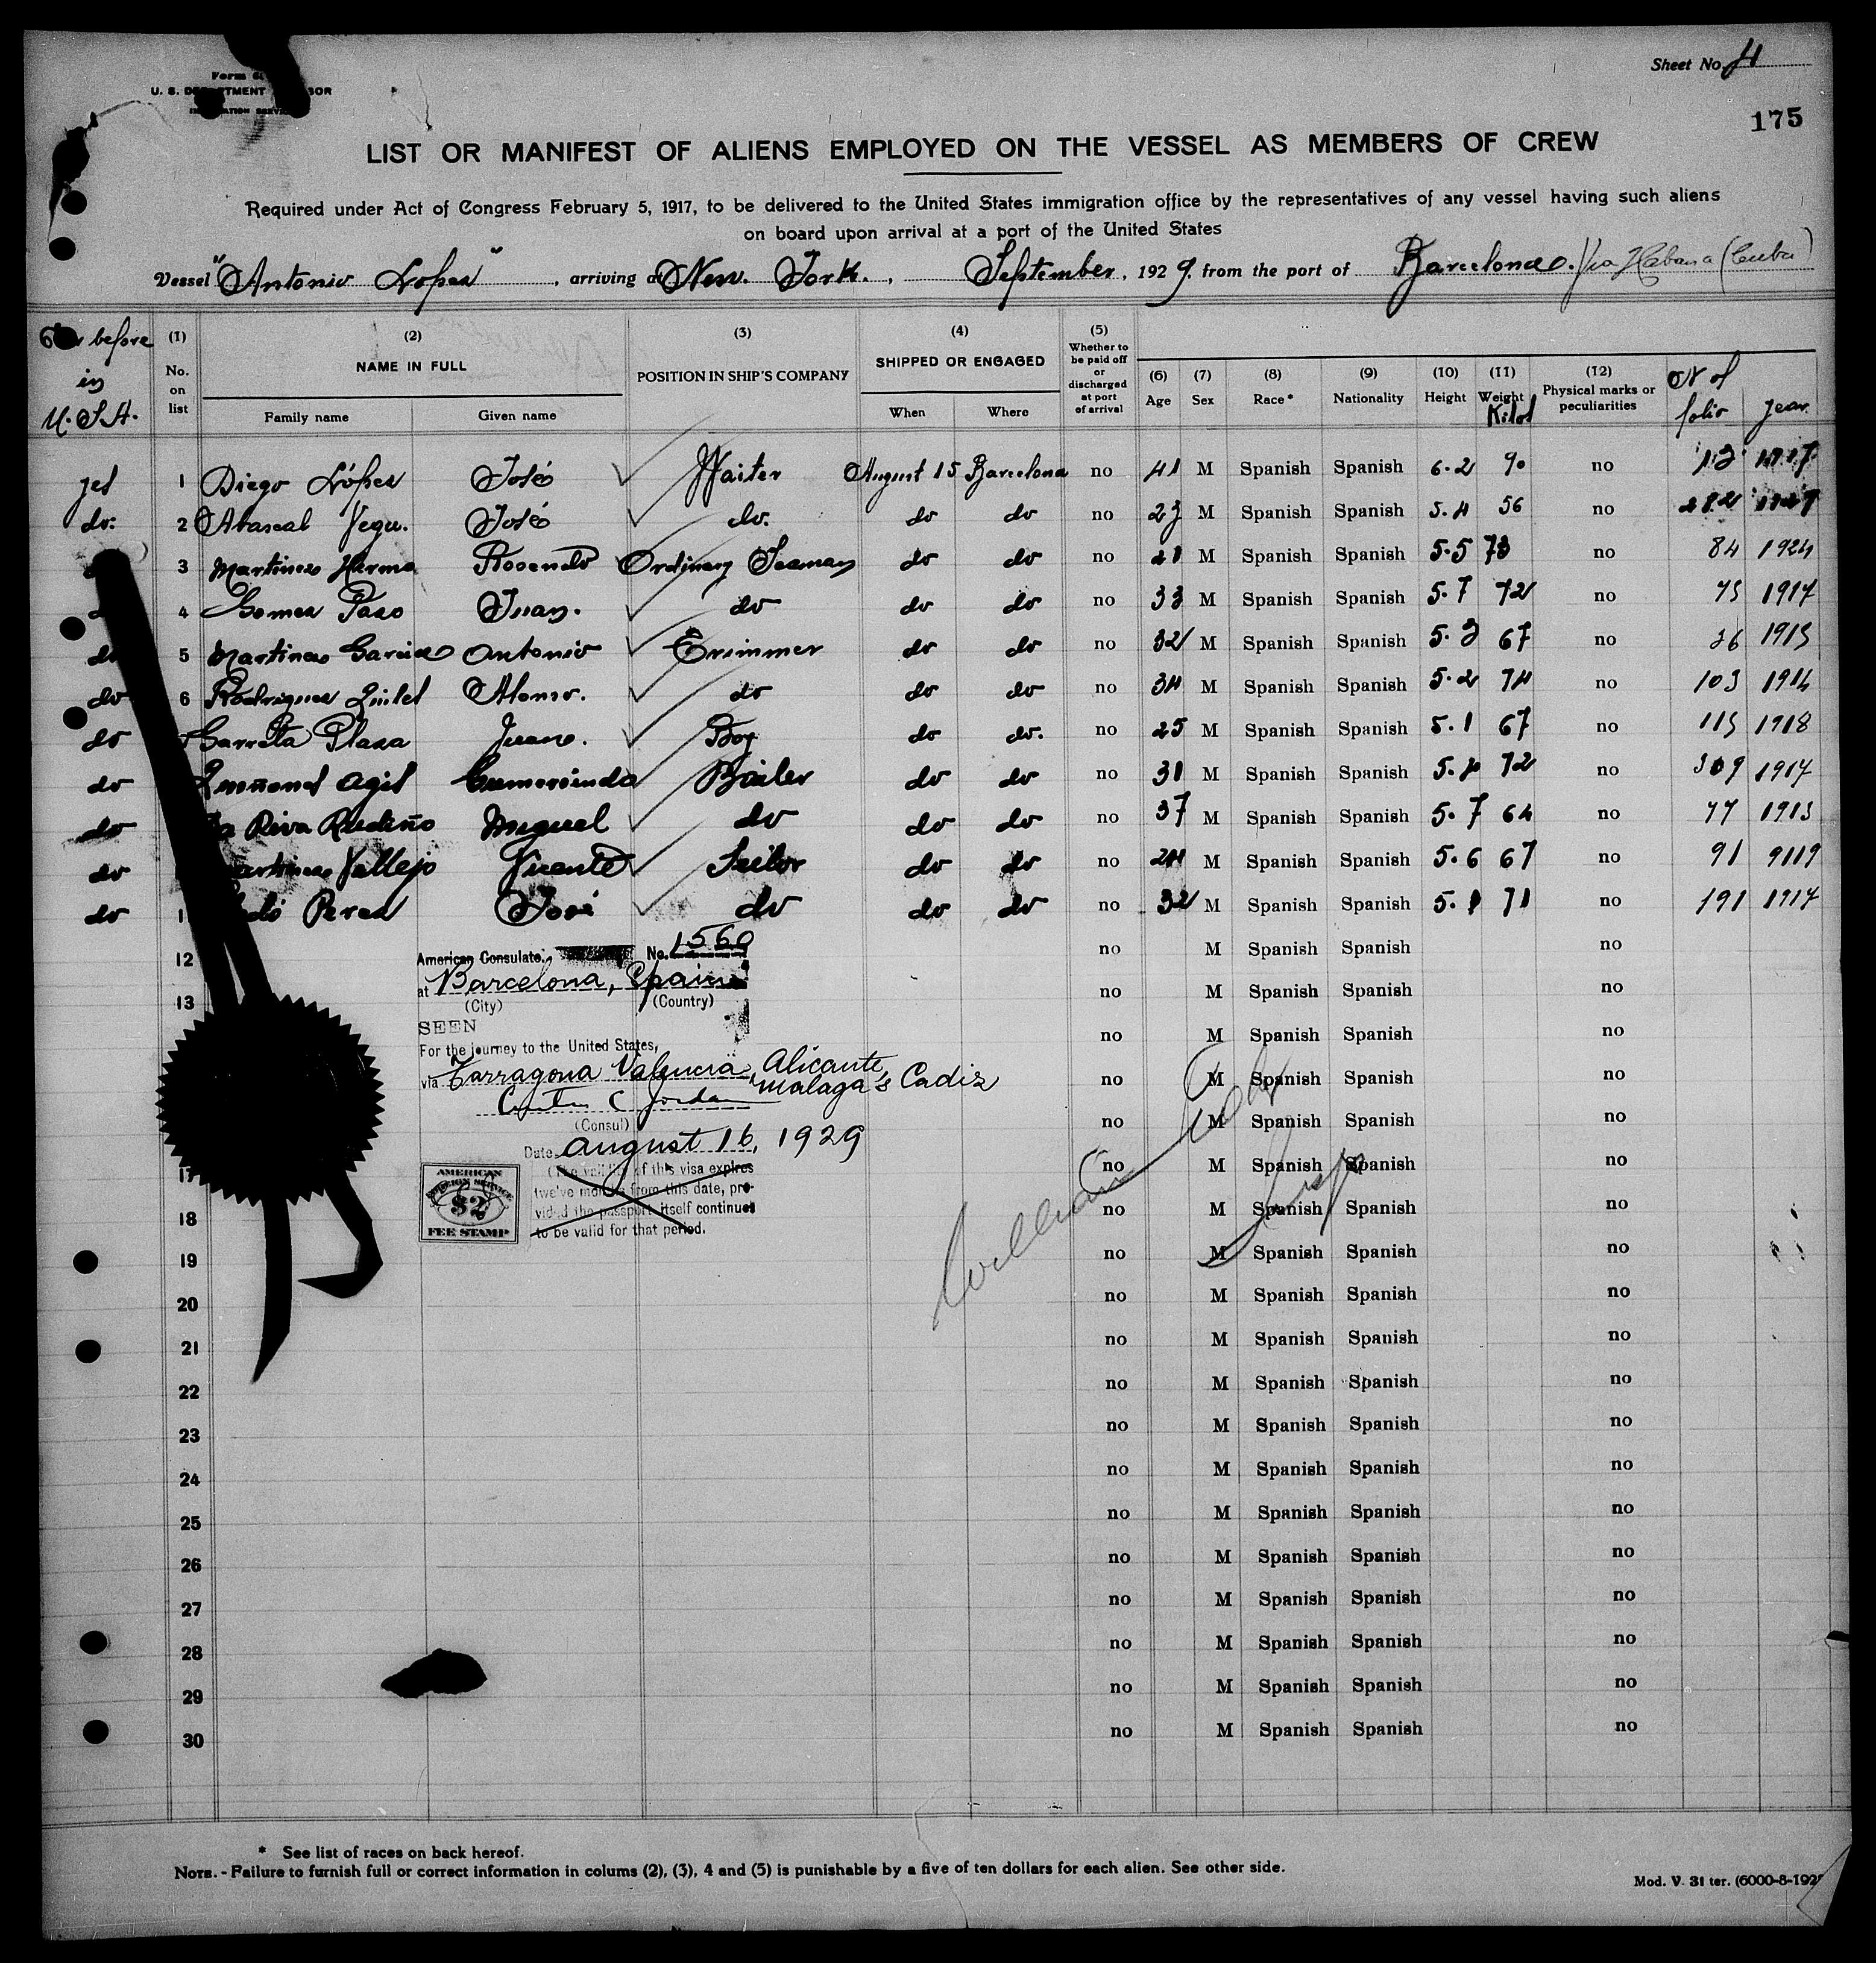 Sheet No. 4
Form
U. S.
175
LIST OR MANIFEST OF ALIENS EMPLOYED ON THE VESSEL AS MEMBERS OF CREW
Required under Act of Congress February 5, 1917, to be delivered to the United States immigration office by the representatives of any vessel having such aliens
on board upon arrival at a port of the United States
Vessel "Antonio Lopez", arriving at New York., September, 1929, from the port of Barcelona. Via Habana (Cuba)
before in U.S.A. (1) No. on list (2) NAME IN FULL Family name Given name (3) POSITION IN SHIP'S COMPANY (4) SHIPPED OR ENGAGED When Where (5) Whether to be paid off or discharged at port of arrival (6) Age (7) Sex (8) Race* (9) Nationality (10) Height (11) Weight Kilos (12) Physical marks or peculiarities Nº of folio year
yes 1 Diego López José Waiter August 15 Barcelona no 41 M Spanish Spanish 6-2 90 no
do: 2 Abascal Vega. José do. do do no M Spanish Spanish 5.4 56 no
3 Martinez Rosendo Ordinary Seaman do do no M Spanish Spanish 5.5 no 84 1924
4 Gomez Paso Juan. do do do no 33 M Spanish Spanish 5.7 72 no 75 1917
do 5 Martinez Garcia Antonio Trimmer do do no 32 M Spanish Spanish 5.3 67 no 36 1915
do 6 Rodriguez Alonso. do do do no 34 M Spanish Spanish 5.2 74 no 103 1914
do Garreta Plaza Juan. Boy do do. no 25 M Spanish Spanish 5.1 67 no 115 1918
do Gumersindo Boiler do do no 31 M Spanish Spanish 72 no 309 1917
do Riva Rudiño Miguel do do do no 37 M Spanish Spanish 5.7 64 no 77 1913
do Vallejo Vicente Sailor do do no 24 M Spanish Spanish 5.6 67 no 91 9119
do Perez José do do do no 32 M Spanish Spanish 71 no 191 1917
12 no M Spanish Spanish no
American Consulate. No. 1560
at Barcelona, Spain
(City) (Country)
13 no M Spanish Spanish no
SEEN
no M Spanish Spanish no
For the journey to the United States,
via Tarragona Valencia, Alicante,
malaga & Cadiz
no M Spanish Spanish no
Curtis C Jordan
(Consul)
no M Spanish Spanish no
Date August 16, 1929
17 no M Spanish Spanish no
(The validity of this visa expires
twelve months from this date, pro-
vided the passport itself continues
to be valid for that period.
AMERICAN
FOREIGN SERVICE
$2
FEE STAMP
18 no M Spanish Spanish no
19 no M Spanish Spanish no
20 no M Spanish Spanish no
21 no M Spanish Spanish no
22 no M Spanish Spanish no
23 no M Spanish Spanish no
24 no M Spanish Spanish no
25 no M Spanish Spanish no
26 no M Spanish Spanish no
27 no M Spanish Spanish no
28 no M Spanish Spanish no
29 no M Spanish Spanish no
30 no M Spanish Spanish no
* See list of races on back hereof.
NOTE. - Failure to furnish full or correct information in colums (2), (3), 4 and (5) is punishable by a five of ten dollars for each alien. See other side.
Mod. V. 31 ter. (6000-8-192